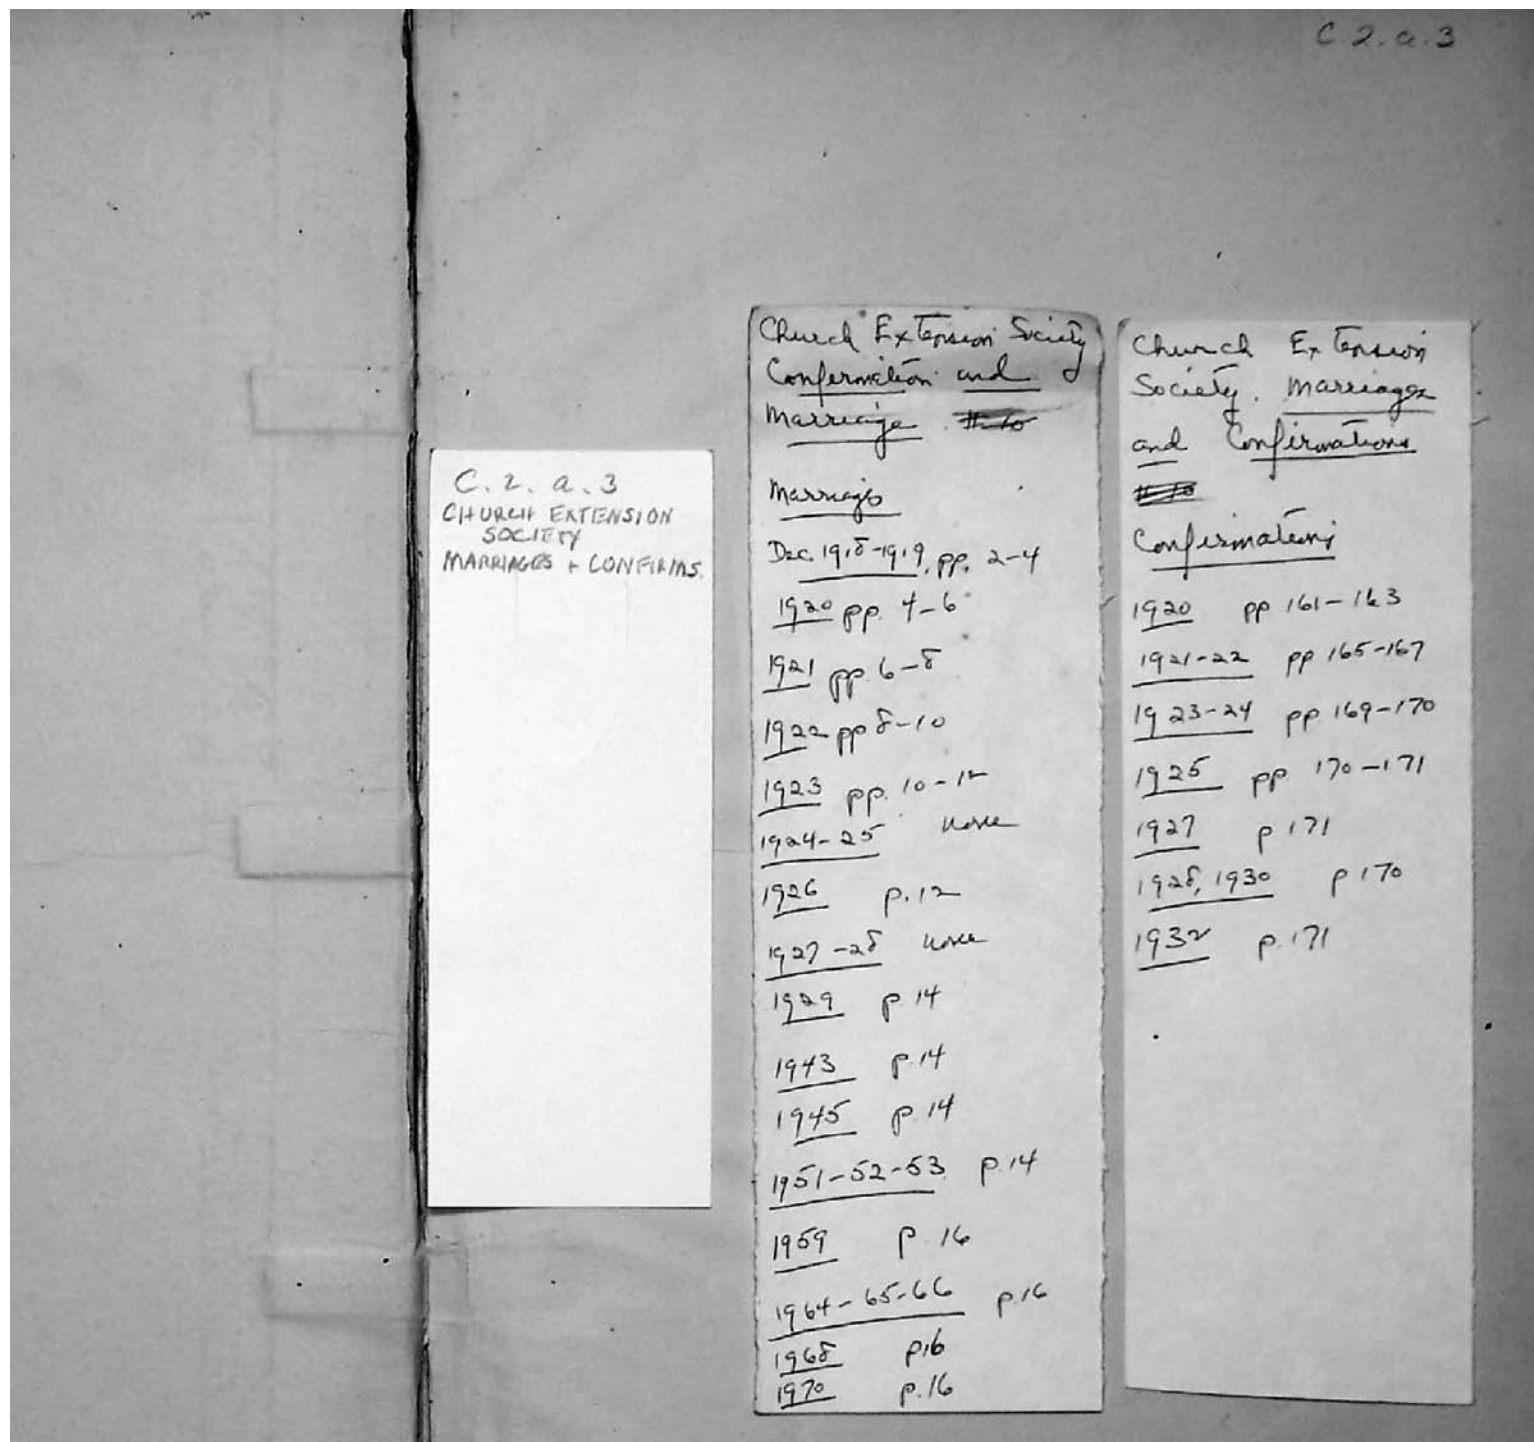 C.2.a.3
C. 2. a. 3
CHURCH EXTENSION
SOCIETY
MARRIAGES + CONFIRMS.
Church Extension Society
Confirmation and
Marriage
Marriages
Dec. 1918-1919, pp. 2-4
1920 pp. 4-6
1921 pp. 6-8
1922 pp 8-10
1923 pp. 10-12
1924-25 none
1926 p. 12
1927-28 none
1929 p. 14
1943 p. 14
1945 p. 14
1951-52-53 p. 14
1959 p. 16
1964-65-66 p. 16
1968 p16
1970 p. 16
Church Extension
Society. Marriages
and Confirmations
Confirmations
1920 pp 161-163
1921-22 pp 165-167
1923-24 pp 169-170
1925 pp 170-171
1927 p 171
1928, 1930 p 170
1932 p. 171